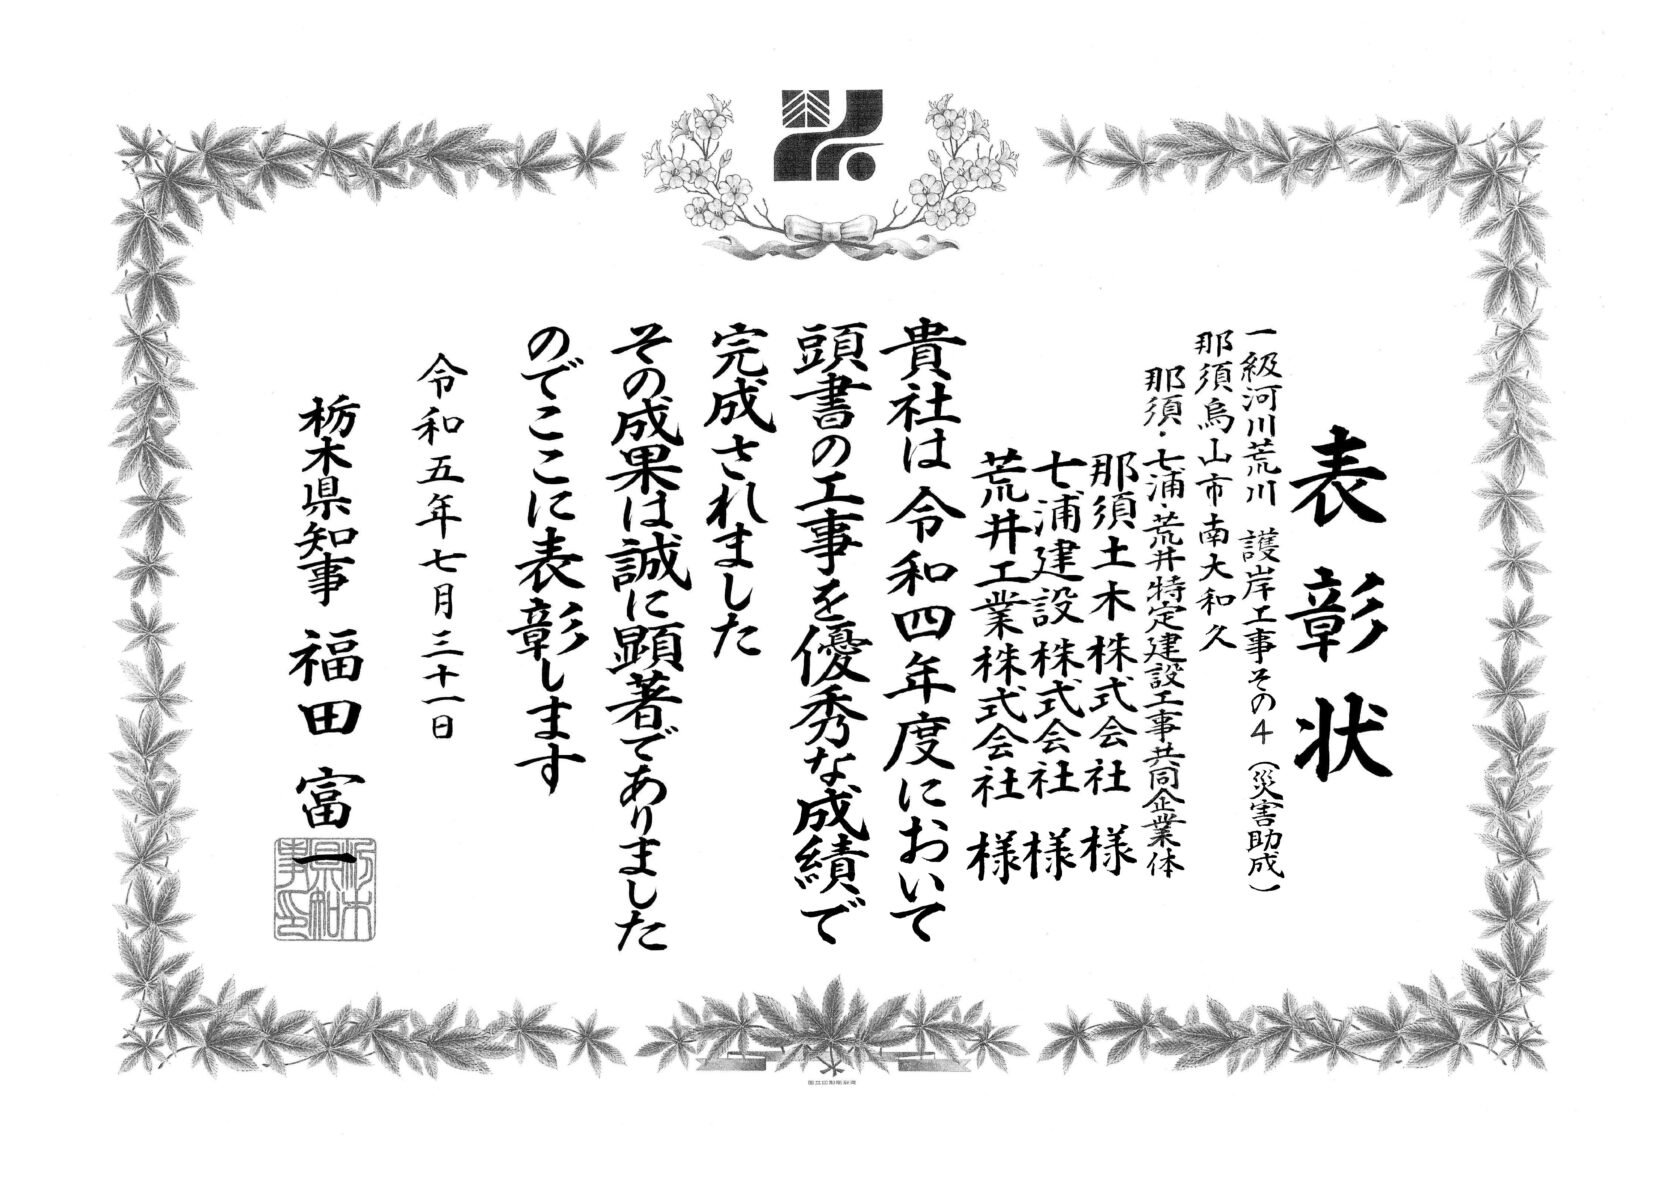 表彰状
一級河川荒川　護岸工事その4（災害助成）
那須烏山市南大和久
那須・七浦・荒井特定建設工事共同企業体
那須土木株式会社　様
七浦建設株式会社　様
荒井工業株式会社　様
貴社は令和四年度において
頭書の工事を優秀な成績で
完成されました
その成果は誠に顕著でありました
のでここに表彰します
令和五年七月三十一日
栃木県知事　福田　富一